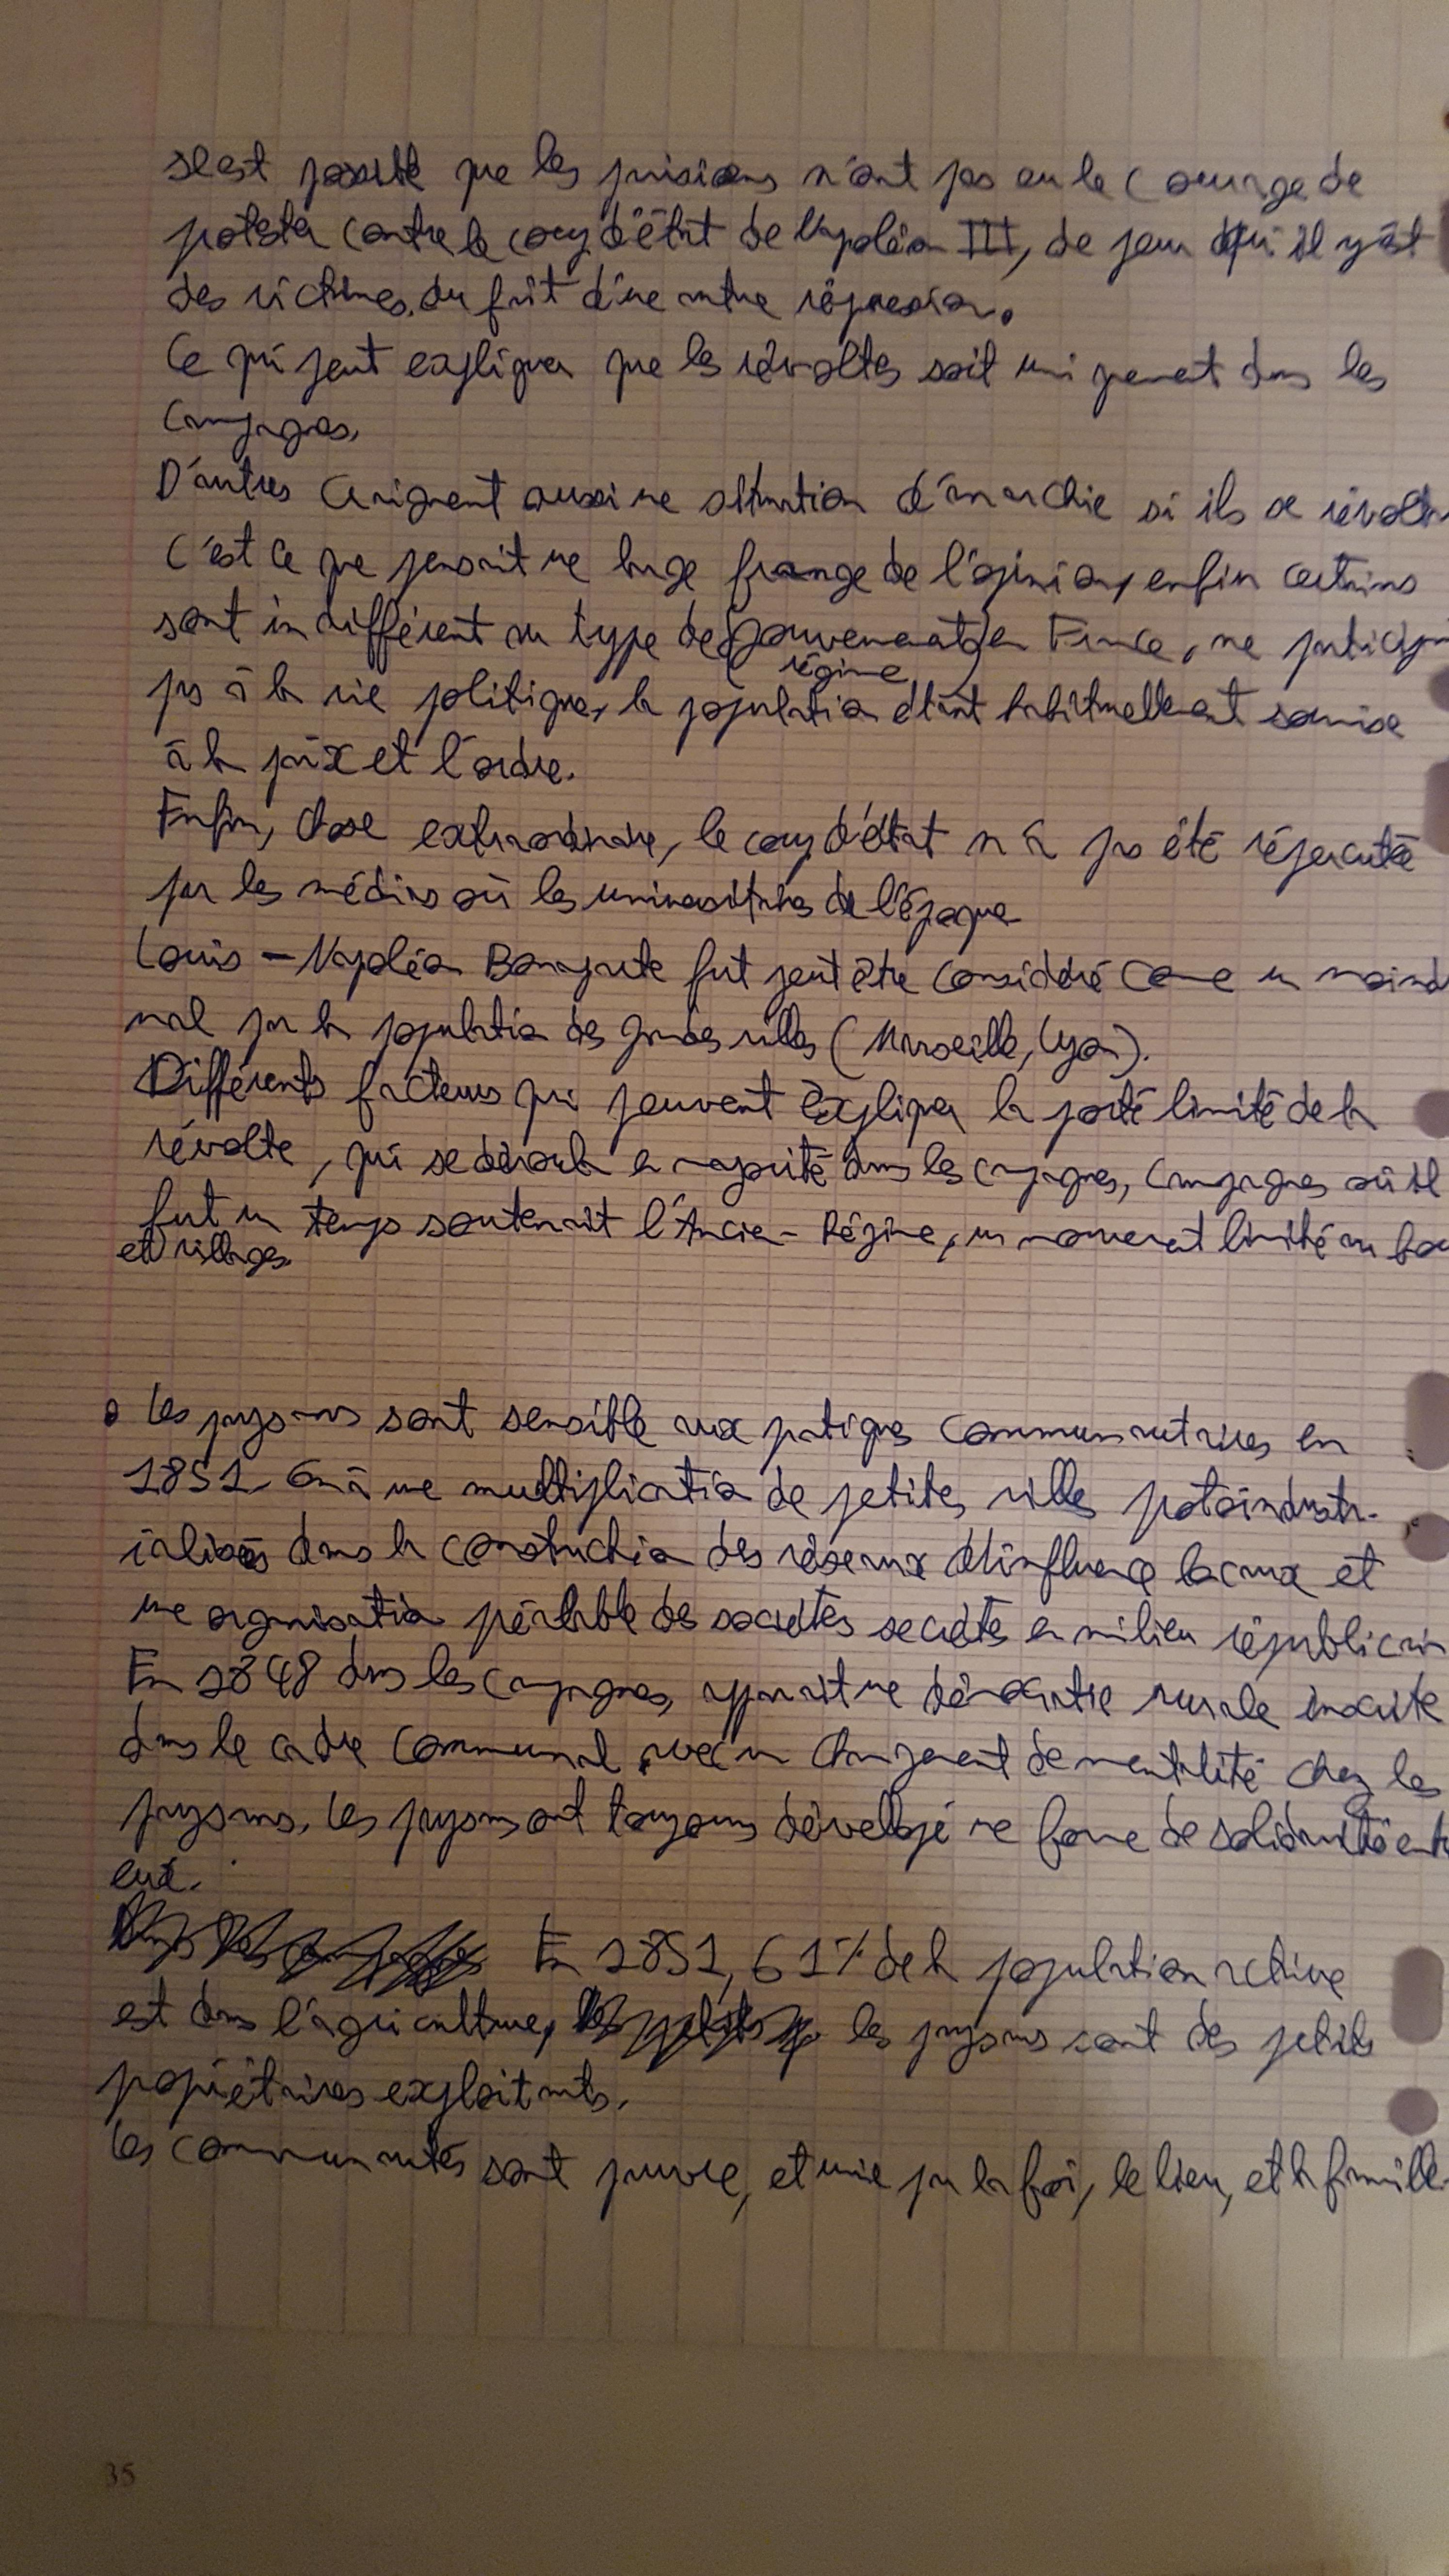 Il est possible que les parisiens n'ont pas eu le courage de
protester contre le coup d'état de Napoléon III, de peur qu'il y est
des victimes, du fait d'une autre répression.
Ce qui peut expliquer que les révoltes soit uniquement dans les
campagnes.
D'autres craignent aussi une situation d'anarchie si ils se révolte
C'est ce que pensait une large frange de l'opinion, enfin certains
sont indifférent au type de (gouvernement) en France, ne participe
régime
pas à la vie politique, la population étant habituellement soumise
à la paix et l'ordre.
Enfin, chose extraordinaire, le coup d'état n'a pas été répercuté
par les médias où les universitaires de l'époque
Louis-Napoléon Bonaparte fut peut être considéré comme un moind
mal par la population des grandes villes (Marseille, Lyon).
Différents facteurs qui peuvent expliquer la porté limité de la
révolte, qui se déroula en majorité dans les campagnes, campagnes où il
fut un temps soutenait l'Ancien-Régime, un mouvement limité au bou
et villages.
• Les paysans sont sensible aux pratiques communautaires en
1851. On a une multiplication de petites villes protoindustr-
ialisées dans la construction des réseaux d'influence locaux et
une organisation préalable des sociétés secrètes en milieu républicain
En 1848 dans les campagnes, apparaît une démocratie rurale inscrite
dans le cadre communal, avec un changement de mentalité chez les
paysans. Les paysans ont toujours dévellopé une forme de solidarité entr
eux.
En 1851, 61% de la population active
est dans l'agriculture, les paysans sont des petits
propriétaires exploitants.
Les communautés sont pauvre, et unie par la foi, le lieu, et la famille.
35